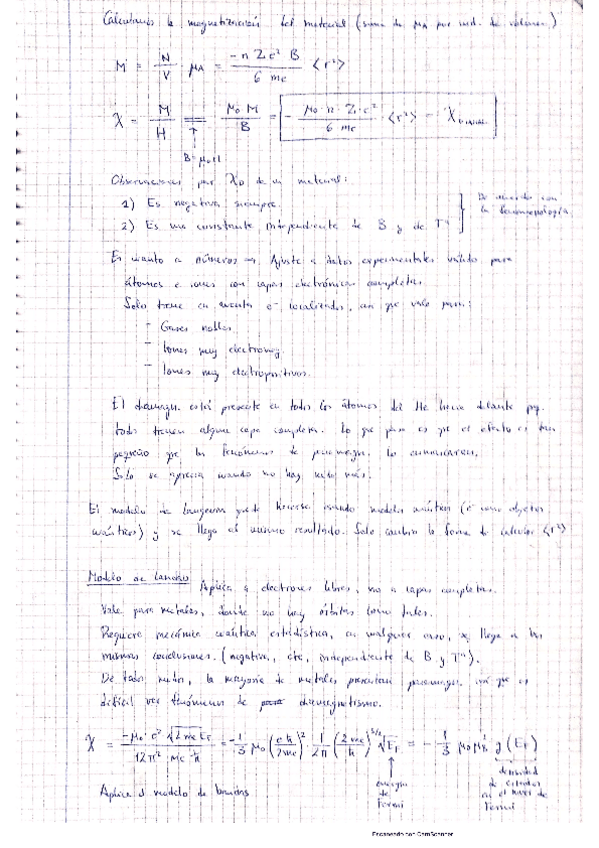 Calculamos la magnetización del material (suma de μA por unid. de volumen)
M = N/V · μA = -n Z e² B / 6 me ⟨r²⟩
χ = M/H = μ₀ M / B = - μ₀ · n · Z · e² / 6 me ⟨r²⟩ = χ
B = μ₀H
Observaciones por χD de un material:
1) Es negativa siempre.
2) Es una constante, independiente de B y de Tª
De acuerdo con la fenomenología
En cuanto a números → Ajuste a datos experimentales válido para
átomos e iones con capas electrónicas completas
Solo tiene en cuenta e⁻ localizados, así que vale para:
- Gases nobles
- Iones muy electroneg.
- Iones muy electropositivos.
El diamagn. está presente en todos los átomos del He hacia delante pq.
todos tienen alguna capa completa. Lo que pasa es que el efecto es tan
pequeño que los fenómenos de paramagn. lo enmascaran.
Solo se aprecia cuando no hay nada más.
El modelo de Langevin puede hacerse usando modelos cuánticos (e⁻ como objetos
cuánticos) y se llega al mismo resultado. Solo cambia la forma de calcular ⟨r²⟩
Modelo de Landau Aplica a electrones libres, no a capas completas.
Vale para metales, donde no hay órbitas como tales.
Requiere mecánica cuántica estadística, en cualquier caso, se llega a las
mismas conclusiones. (negativa, cte, independiente de B y Tª).
De todos modos, la mayoría de metales presentan paramagn. así que es
difícil ver fenómenos de diamagnetismo.
χ = -μ₀ · e² √(2 me EF) / 12π² · me · ħ = -1/3 μ₀ (eħ/2me)² · 1/2π (2me/ħ)^(3/2) √EF = - 1/3 μ₀ μB² g(EF)
energía de Fermi
densidad de estados en el nivel de Fermi
Aplica el modelo de bandas